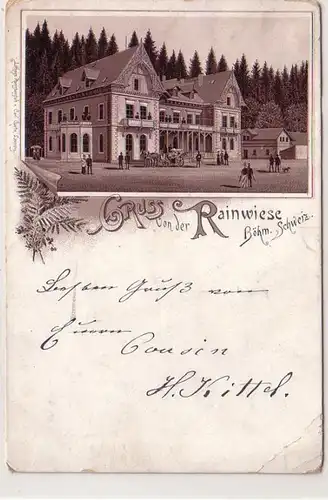 Gruss
von der
Rainwiese
Böhm. Schweiz.
Besten Gruß von
Eurem
Cousin
H. Kittel.